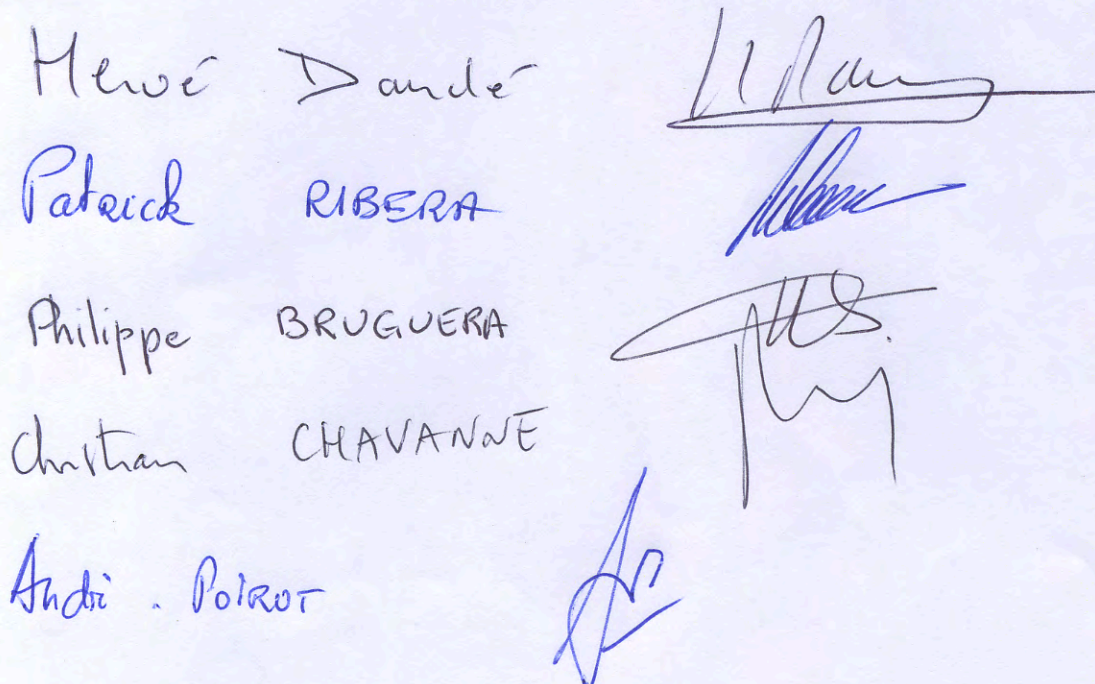 Hervé Dandé
Patrick RIBERA
Philippe BRUGUERA
Christian CHAVANNE
André . POIROT